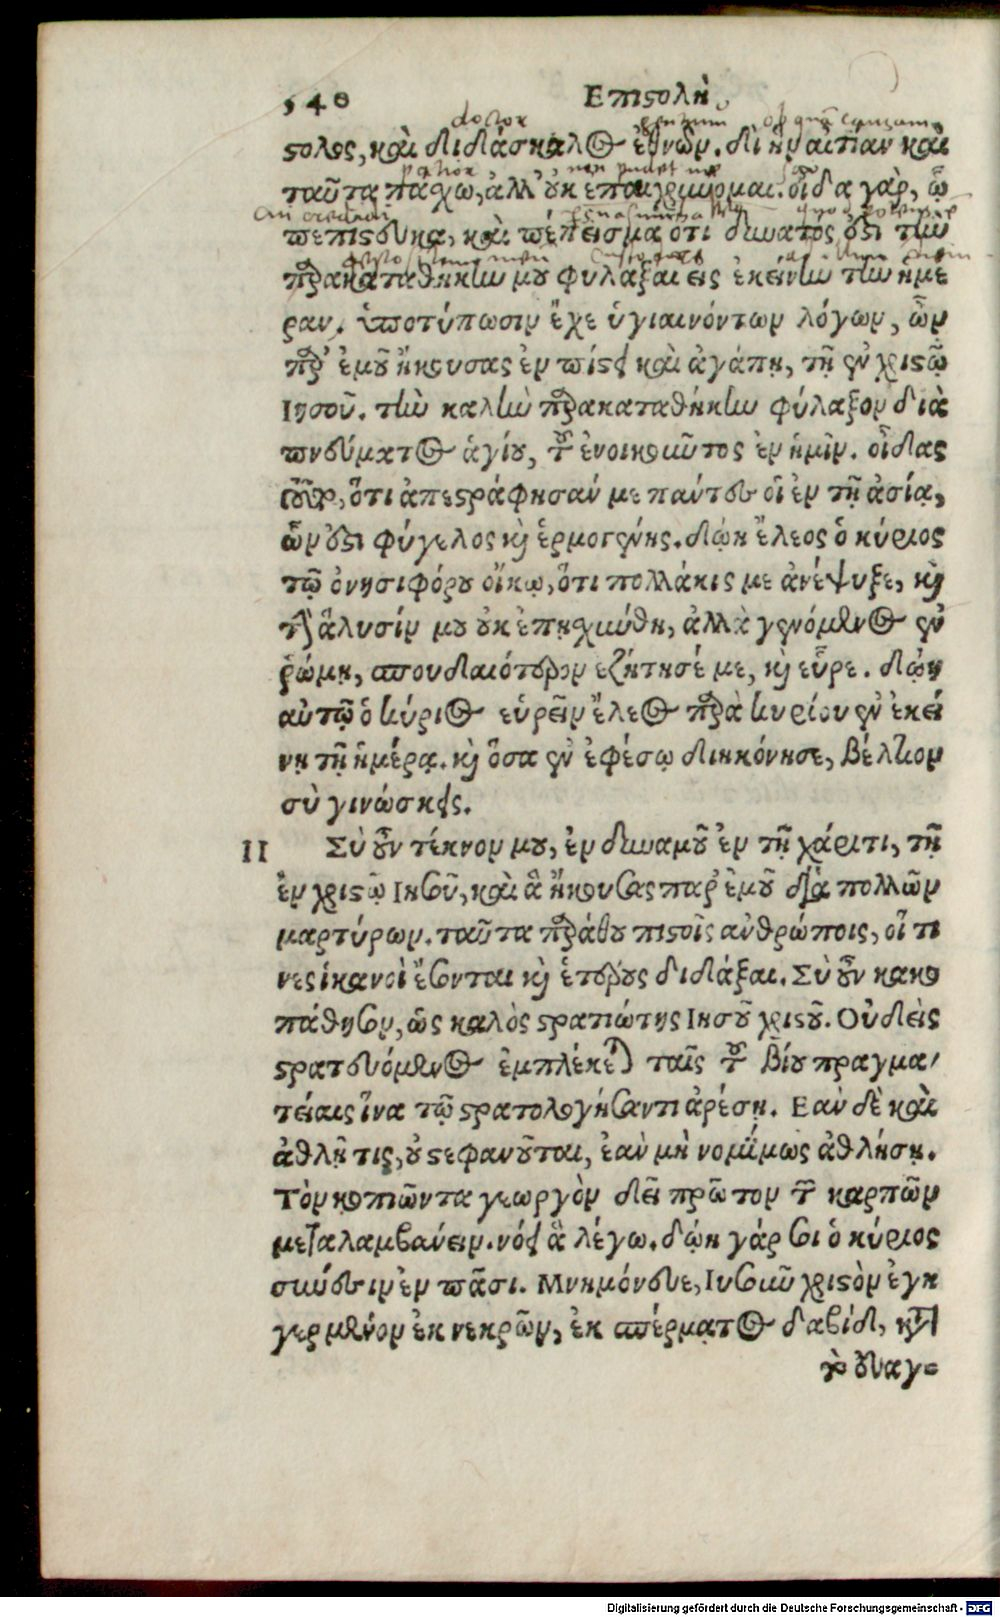 540 Επιστολὴ
στολος, καὶ διδάσκαλος ἐθνῶν. δι ἣν αἰτίαν καὶ
ταῦτα πάσχω, ἀλλ' οὐκ ἐπαισχύνομαι. οἶδα γὰρ, ᾧ
πεπίστευκα, καὶ πέπεισμαι ὅτι δυνατός ἐστι τὴν
παρακαταθήκην μου φυλάξαι εἰς ἐκείνην τὴν ἡμέ
ραν. ὑποτύπωσιν ἔχε ὑγιαινόντων λόγων, ὧν
παρ' ἐμοῦ ἤκουσας ἐν πίστει καὶ ἀγάπῃ, τῇ ἐν χριστῷ
Ιησοῦ. τὴν καλὴν παρακαταθήκην φύλαξον διὰ
πνεύματος ἁγίου, τοῦ ἐνοικοῦντος ἐν ἡμῖν. οἶδας
τοῦτο, ὅτι ἀπεστράφησάν με πάντες οἱ ἐν τῇ ἀσίᾳ,
ὧν ἐστι φύγελος καὶ ἑρμογένης. δῴη ἔλεος ὁ κύριος
τῷ ὀνησιφόρου οἴκῳ, ὅτι πολλάκις με ἀνέψυξε, καὶ
τὴν ἅλυσίν μου οὐκ ἐπῃσχύνθη, ἀλλὰ γενόμενος ἐν
ῥώμῃ, σπουδαιότερον εζήτησέ με, καὶ εὗρε. δῴη
αὐτῷ ὁ κύριος εὑρεῖν ἔλεος παρὰ κυρίου ἐν ἐκεί
νῃ τῇ ἡμέρᾳ. καὶ ὅσα ἐν ἐφέσῳ διηκόνησε, βέλτιον
σὺ γινώσκεις.
II Σὺ οὖν τέκνον μου, ἐν δυναμοῦ ἐν τῇ χάριτι, τῇ
ἐν χριστῷ Ιησοῦ, καὶ ἃ ἤκουσας παρ' ἐμοῦ διὰ πολλῶν
μαρτύρων. ταῦτα παράθου πιστοῖς ανθρώποις, οἵ τι
νες ἱκανοὶ ἔσονται καὶ ἑτέρους διδάξαι. Σὺ οὖν κακο
πάθησον, ὡς καλὸς στρατιώτης Ιησοῦ χριστοῦ. Οὐδεὶς
στρατευόμενος ἐμπλέκεται ταῖς τοῦ βίου πραγμα/
τείαις ἵνα τῷ στρατολογήσαντι ἀρέσῃ. Εὰν δὲ καὶ
ἀθλῇ τις, οὐ στεφανοῦται, ἐὰν μὴ νομίμως ἀθλήσῃ.
Τὸν κοπιῶντα γεωργὸν δεῖ πρῶτον τῶν καρπῶν
μεταλαμβάνειν. νόει ἃ λέγω. δῴη γάρ σοι ὁ κύριος
σύνεσιν ἐν πᾶσι. Μνημόνευε, Ιησοῦν χριστὸν ἐγη
γερμένον ἐκ νεκρῶν, ἐκ σπέρματος δαβίδ, κατὰ
τὸ εὐαγ=
Digitalisierung gefördert durch die Deutsche Forschungsgemeinschaft - DFG